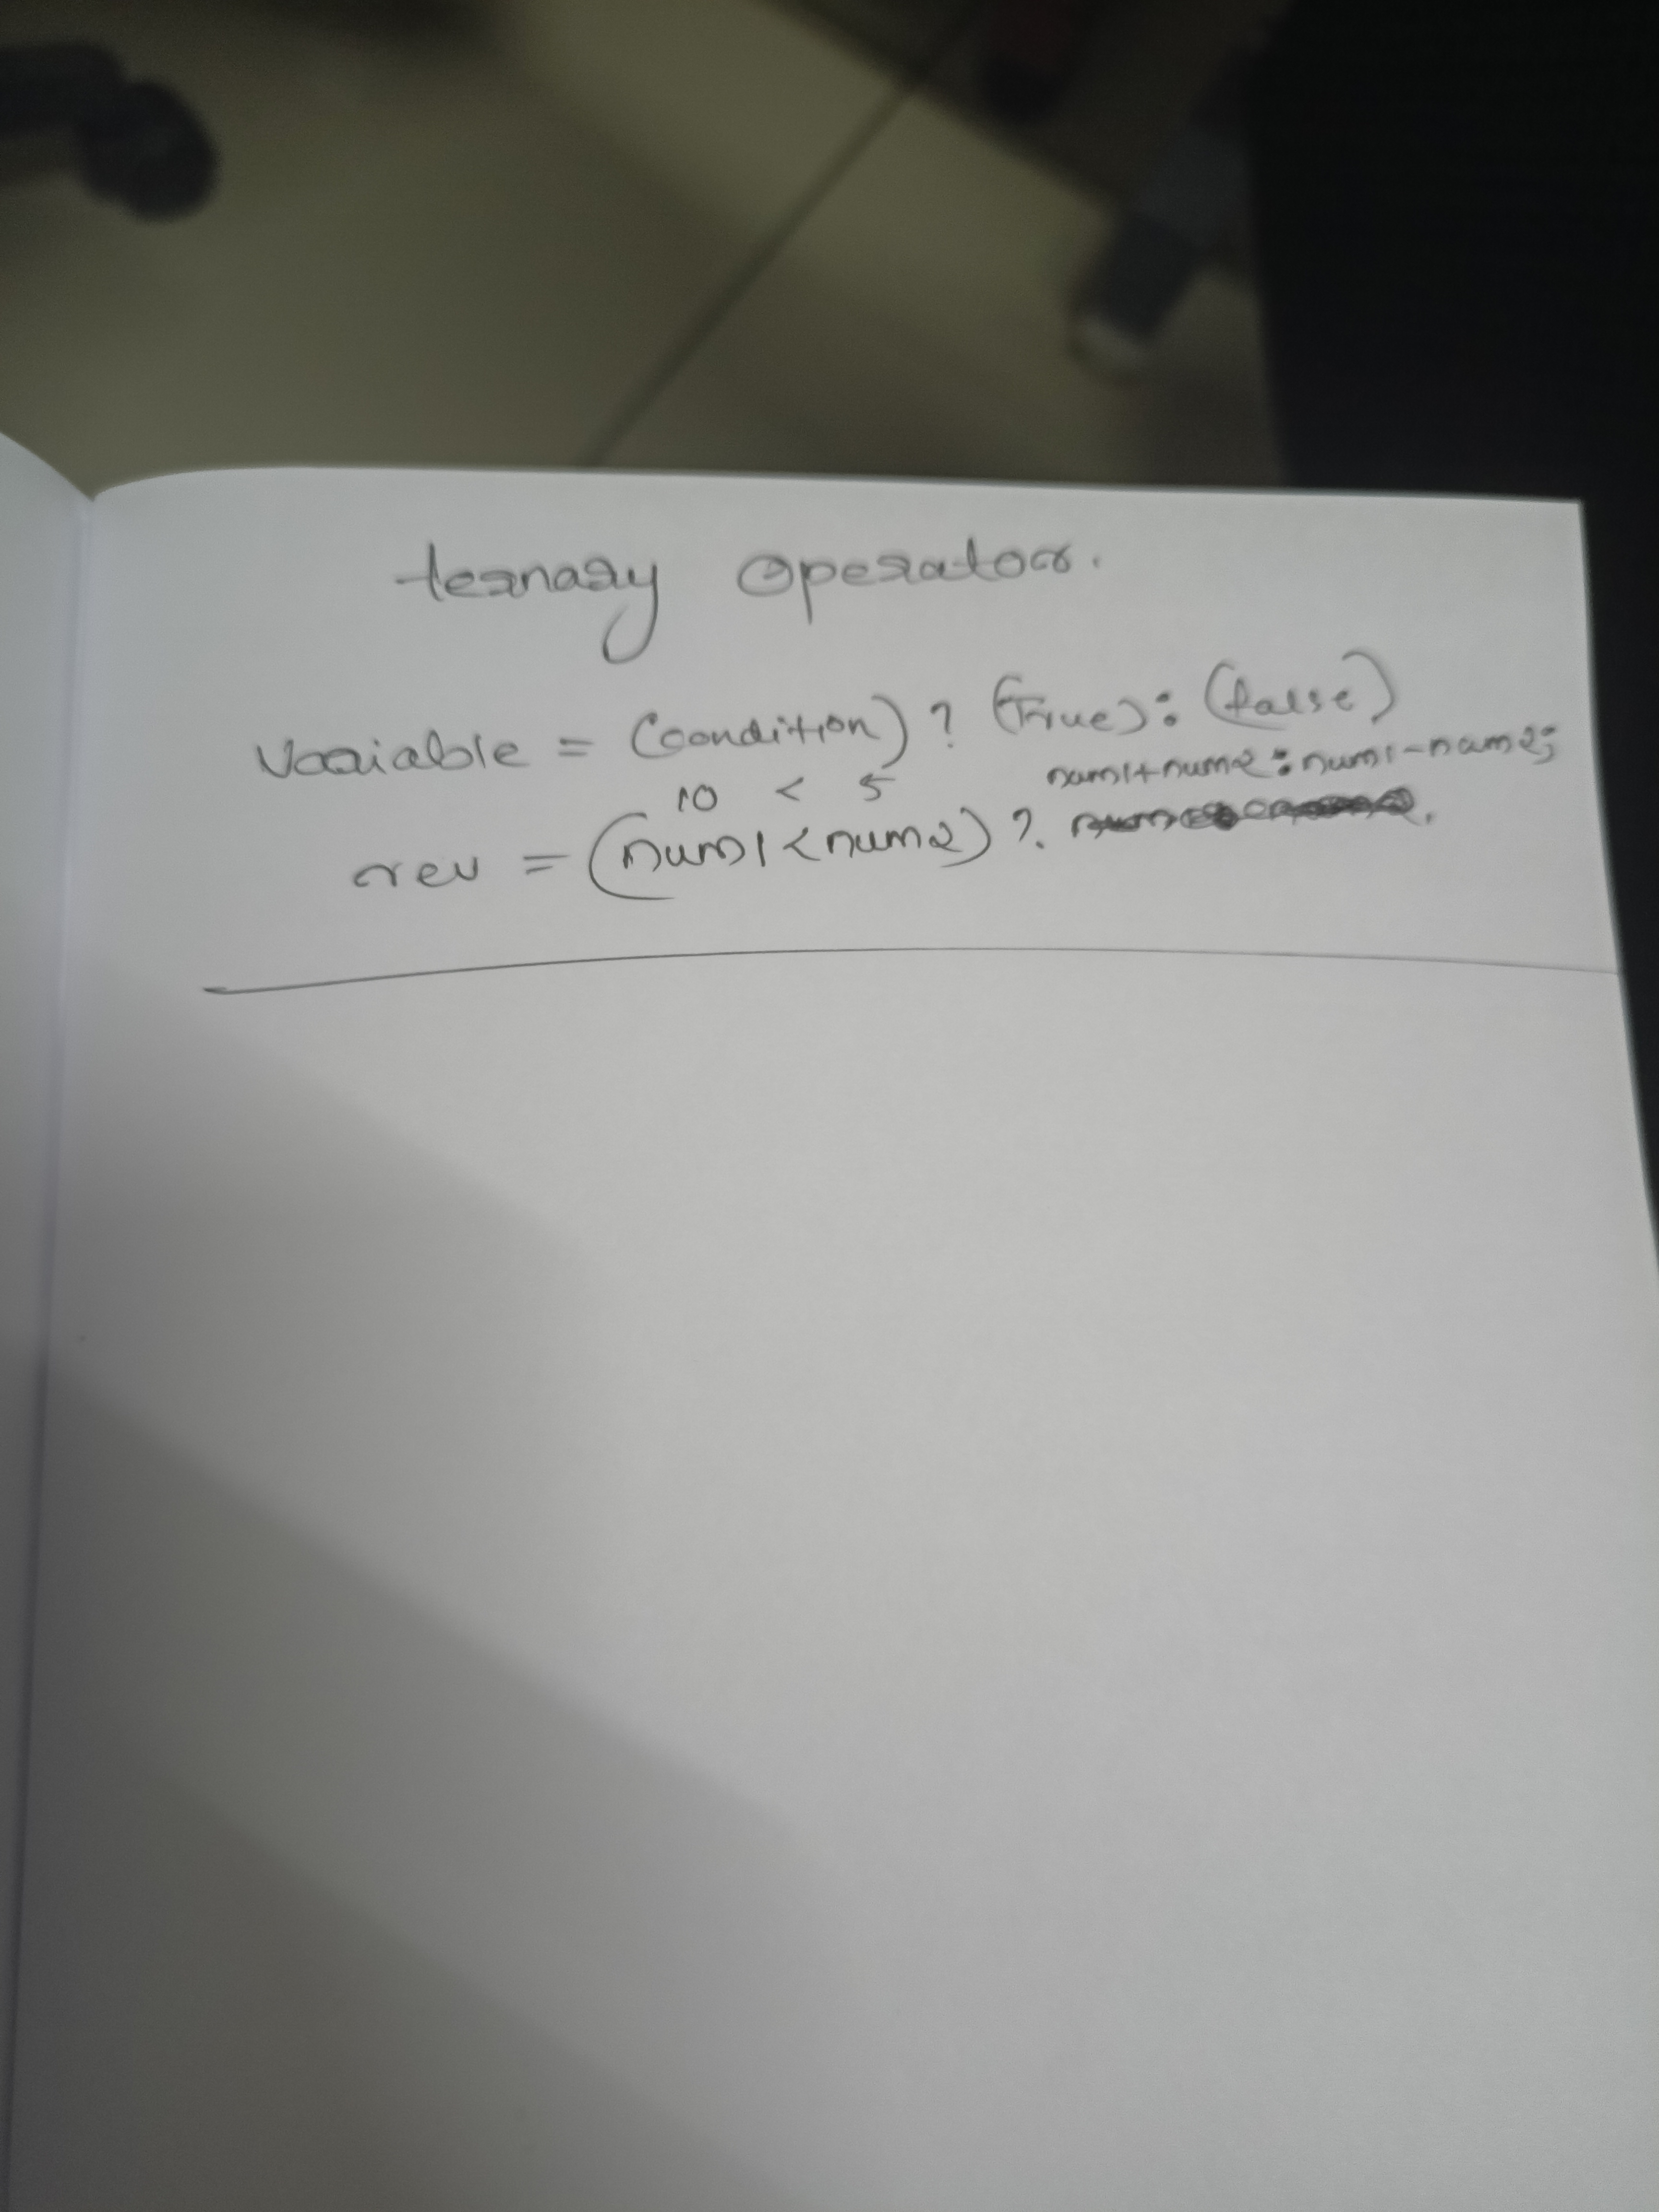 ternary operator.
Variable = (condition) ? (True) : (false)
10 < 5
num1+num2 : num1-num2;
rev = (num1<num2) ?